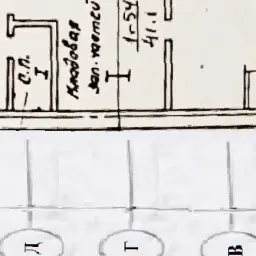 с.п.
Кладовая
зап. частей
1-54
41.1
Д
Г
В